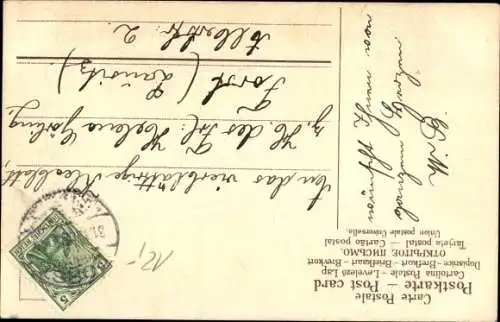 Carte Postale
Postkarte — Post card
Cartolina Postale — Levelező Lap
Dopisnice — Brefkort — Briefkaart — Brevkort
ОТКРЫТОЕ ПИСЬМО.
Tarjeta postal — Cartão postal
Union postale Universelle.
An das vierblättrige Kleeblatt,
z. H. des Frl. Helene
Forst (Lausitz)
Albertstr. 2.
wünscht Ihnen von
ganzem Herzen
DEUTSCHES REICH
5 5
12,-